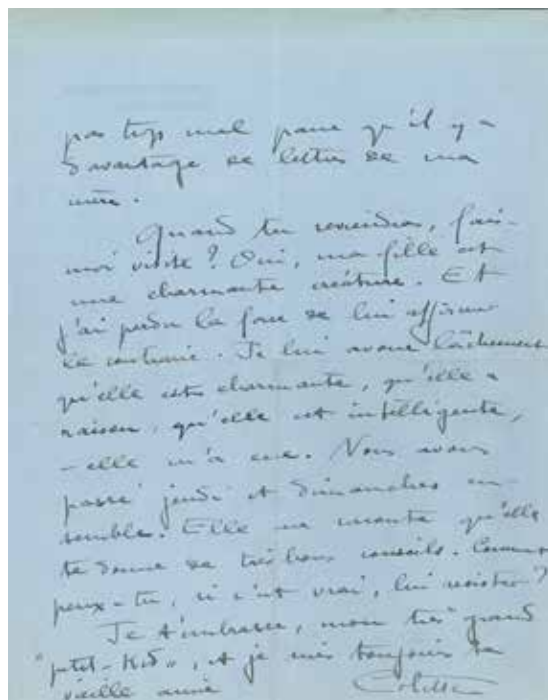 pas trop mal parce qu'il y a
davantage de lettres de ma
mère.
Quand tu reviendras, fais-
moi visite ? Oui, ma fille est
une charmante créature. Et
j'ai perdu la force de lui affirmer
le contraire. Je lui avoue lâchement
qu'elle est charmante, qu'elle a
raison, qu'elle est intelligente,
- elle m'a eue. Nous avons
passé jeudi et dimanche en-
semble. Elle me raconte qu'elle
te donne de très bons conseils. Comment
peux-tu, si c'est vrai, lui résister ?
Je t'embrasse, mon très grand
"petit-Kid", et je suis toujours ta
vieille amie
Colette